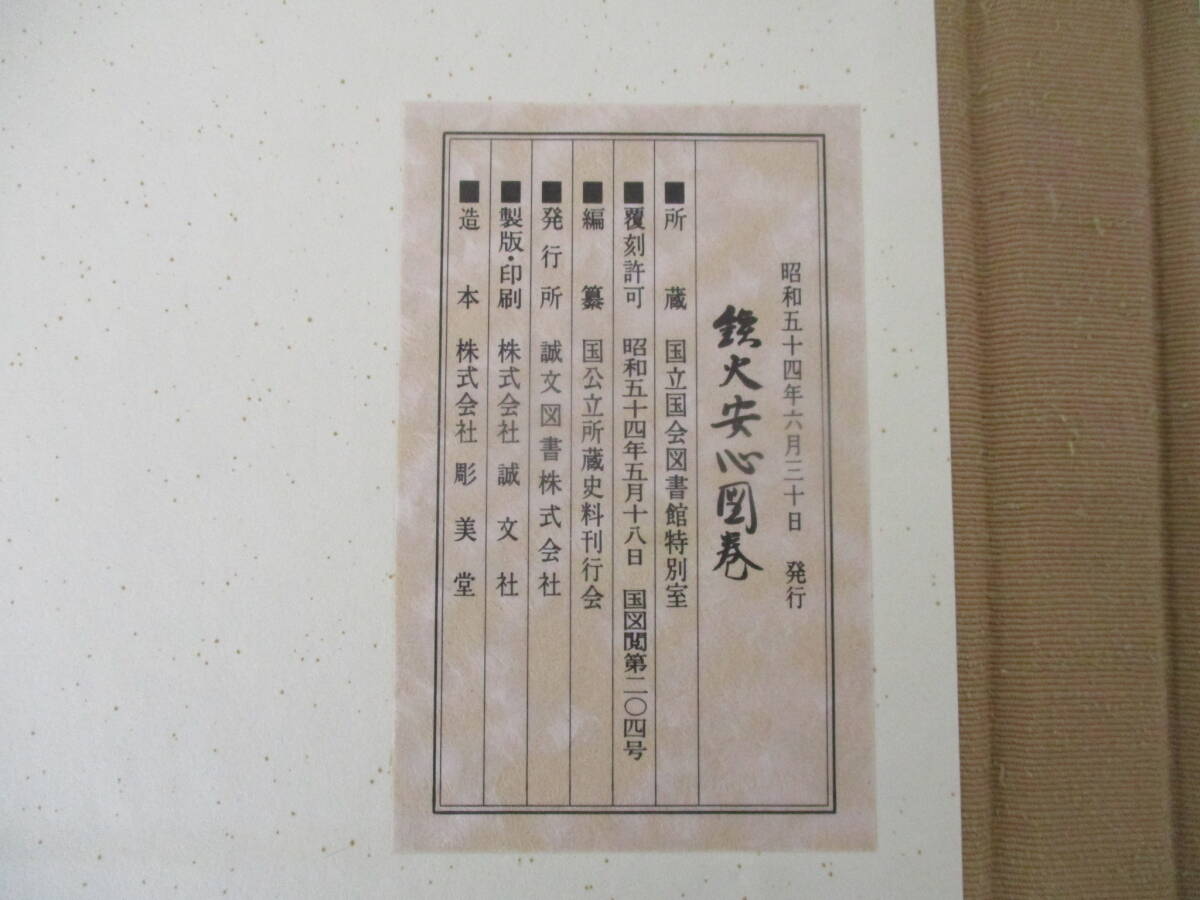 昭和五十四年六月三十日　発行
鉄火安心図巻
■所蔵　国立国会図書館特別室
■覆刻許可　昭和五十四年五月十八日　国図閲第二〇四号
■編纂　国公立所蔵史料刊行会
■発行所　誠文図書株式会社
■製版・印刷　株式会社誠文社
■造本　株式会社彫美堂